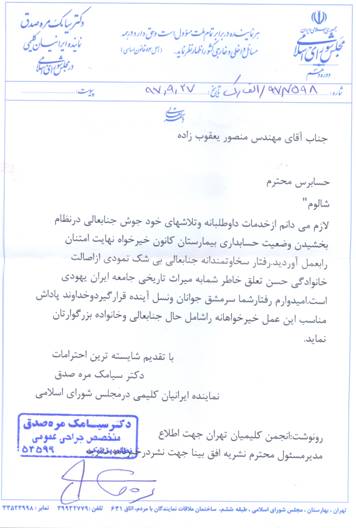 دکتر سیامک مره صدق
نماینده ایرانیان کلیمی
در مجلس شورای اسلامی
هر نماینده در برابر تمام ملت مسؤول است و حق دارد در همه
مسائل داخلی و خارجی کشور اظهار نظر نماید.
جمهوری اسلامی ایران
مجلس شورای اسلامی
شماره
تاریخ ۸۷،۹،۲۷
پیوست:
جناب آقای مهندس منصور یعقوب زاده
حسابرس محترم
شالوم"
لازم می دانم ازخدمات داوطلبانه وتلاشهای خود جوش جنابعالی درنظام
بخشیدن وضعیت حسابداری بیمارستان کانون خیرخواه نهایت امتنان
رابعمل آوردید.رفتار سخاوتمندانه جنابعالی بی شک نمودی ازاصالت
خانوادگی حسن تعلق خاطر شمابه میراث تاریخی جامعه ایران یهودی
است.امیدوارم رفتارشما سرمشق جوانان ونسل آینده قرارگیردوخداوند پاداش
مناسب این عمل خیرخواهانه راشامل حال جنابعالی وخانواده بزرگوارتان
نماید.
با تقدیم شایسته ترین احترامات
دکتر سیامک مره صدق
نماینده ایرانیان کلیمی درمجلس شورای اسلامی
رونوشت:انجمن کلیمیان تهران جهت اطلاع
مدیرمسئول محترم نشریه افق بینا جهت نشردر
دکتر سیامک مره صدق
متخصص جراحی عمومی
۵۴۵۹۹
تهران، بهارستان، مجلس شورای اسلامی، ساختمان ملاقات نمایندگان با مردم، طبقه ششم، اتاق ۶۴۱ تلفن: ۳۹۹۴۲۷۷۹ نمابر: ۳۳۵۲۳۹۹۸